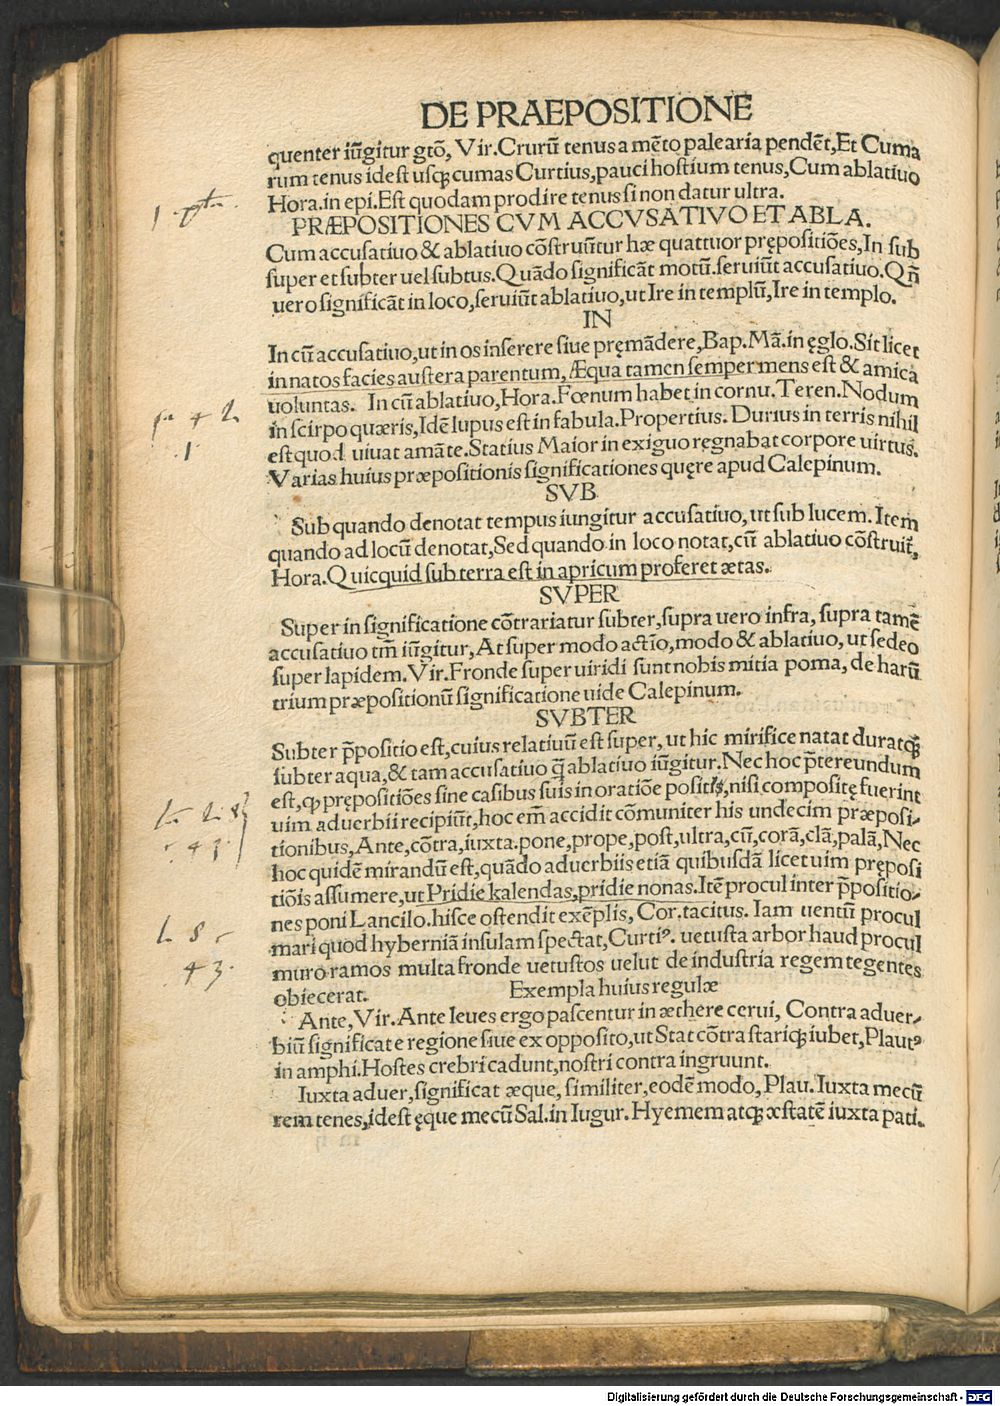 DE PRAEPOSITIONE
quenter iūgitur gtō, Vir. Crurū tenus a mēto palearia pendēt, Et Cuma
rum tenus idest usqꝫ cumas Curtius, pauci hostium tenus, Cum ablatiuo
Hora. in epi. Est quodam prodire tenus si non datur ultra.
PRÆPOSITIONES CVM ACCVSATIVO ET ABLA.
Cum accusatiuo & ablatiuo cōstruūtur hæ quattuor prępositiōes, In sub
super et subter uel subtus. Quādo significāt motū. seruiūt accusatiuo. Qñ
uero significāt in loco, seruiūt ablatiuo, ut Ire in templū, Ire in templo.
IN
In cū accusatiuo, ut in os inserere siue pręmādere, Bap. Mā. in ęglo. Sit licet
in natos facies austera parentum, Æqua tamen semper mens est & amica
uoluntas. In cū ablatiuo, Hora. Fœnum habet in cornu. Teren. Nodum
in scirpo quæris, Idē lupus est in fabula. Propertius. Durius in terris nihil
est quod uiuat amāte. Statius Maior in exiguo regnabat corpore uirtus.
Varias huius præpositionis significationes quęre apud Calepinum.
SVB
Sub quando denotat tempus iungitur accusatiuo, ut sub lucem. Item
quando ad locū denotat, Sed quando in loco notat, cū ablatiuo cōstruit̄,
Hora. Quicquid sub terra est in apricum proferet ætas.
SVPER
Super in significatione cōtrariatur subter, supra uero infra, supra tamē
accusatiuo tm̄ iūgitur, At super modo actīo, modo & ablatiuo, ut sedeo
super lapidem. Vir. Fronde super uiridi sunt nobis mitia poma, de harū
trium præpositionū significatione uide Calepinum.
SVBTER
Subter p̄positio est, cuius relatiuū est super, ut hic mirifice natat duratqꝫ
subter aqua, & tam accusatiuo q̄ ablatiuo iūgitur. Nec hoc p̄tereundum
est, ꝙ prępositiōes sine casibus suis in oratiōe positis, nisi compositę fuerint
uim aduerbii recipiūt, hoc em̄ accidit cōmuniter his undecim præposi-
tionibus, Ante, cōtra, iuxta. pone, prope, post, ultra, cū, corā, clā, palā, Nec
hoc quidē mirandū est, quādo aduerbiis etiā quibusdā licet uim pręposi
tiōis assumere, ut Pridie kalendas, pridie nonas. Itē procul inter p̄positio-
nes poni Lancilo. hisce ostendit exēplis, Cor. tacitus. Iam uentū procul
mari quod hyberniā insulam spectat, Curtiꝰ. uetusta arbor haud procul
muro ramos multa fronde uetustos uelut de industria regem tegentes
obiecerat. Exempla huius regulæ
Ante, Vir. Ante leues ergo pascentur in æthere cerui, Contra aduer-
biū significat e regione siue ex opposito, ut Stat cōtra stariqꝫ iubet, Plautꝰ
in amphi. Hostes crebri cadunt, nostri contra ingruunt.
Iuxta aduer, significat æque, similiter, eodē modo, Plau. Iuxta mecū
rem tenes, idest ęque mecū Sal. in Iugur. Hyemem atqꝫ æstatē iuxta pati.
42
1
43
l. 8
43
Digitalisierung gefördert durch die Deutsche Forschungsgemeinschaft - DFG